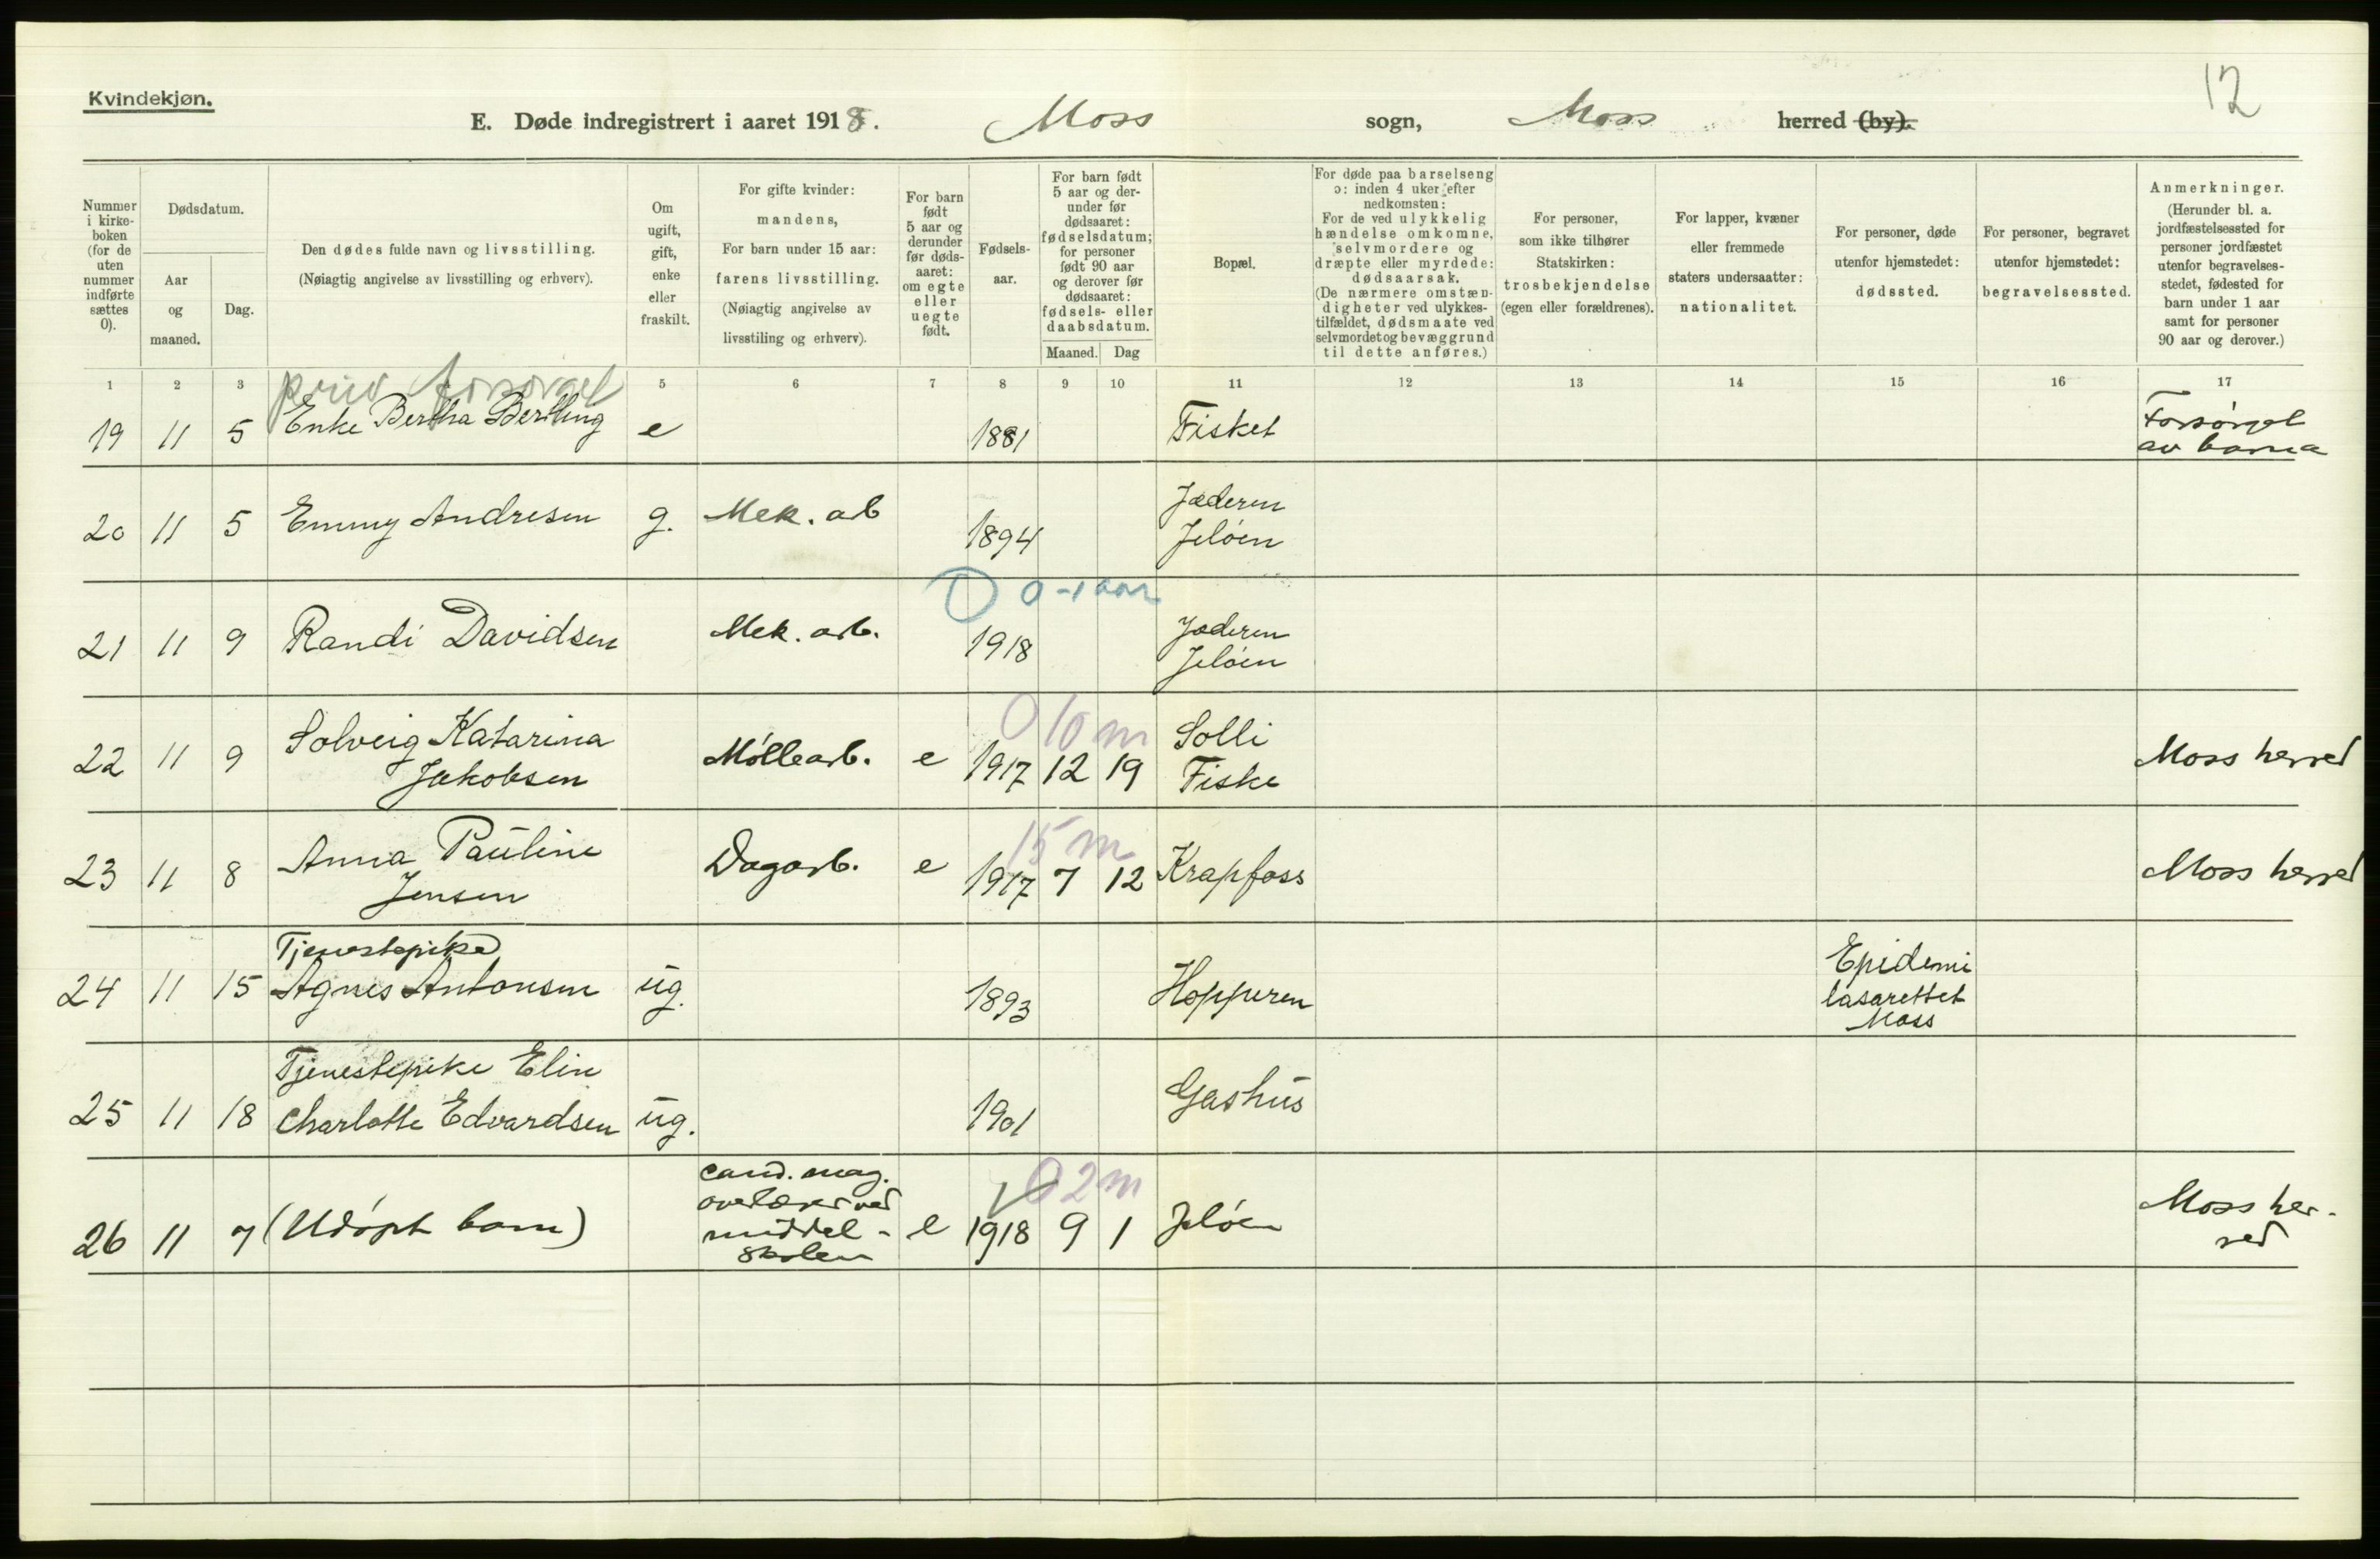 12
Kvindekjøn.
E. Døde indregistrert i aaret 1918. Moss sogn, Moss herred (by).
Nummer i kirke-boken (for de uten nummer indførte sættes 0).
Dødsdatum.
Aar og maaned.
Dag.
Den dødes fulde navn og livsstilling.
(Nøiagtig angivelse av livsstilling og erhverv).
Om ugift, gift, enke eller fraskilt.
For gifte kvinder: mandens,
For barn under 15 aar: farens livsstilling.
(Nøiagtig angivelse av livsstiling og erhverv).
For barn født 5 aar og derunder før døds-aaret: om egte eller uegte født.
Fødsels-aar.
For barn født 5 aar og der-under før dødsaaret: fødselsdatum; for personer født 90 aar og derover før dødsaaret: fødsels- eller daabsdatum.
Maaned. Dag
Bopæl.
For døde paa barselseng ɔ: inden 4 uker efter nedkomsten:
For de ved ulykkelig hændelse omkomne, selvmordere og dræpte eller myrdede: dødsaarsak.
(De nærmere omstæn-digheter ved ulykkes-tilfældet, dødsmaate ved selvmordet og bevæggrund til dette anføres.)
For personer, som ikke tilhører Statskirken: trosbekjendelse (egen eller forældrenes).
For lapper, kvæner eller fremmede staters undersaatter: nationalitet.
For personer, døde utenfor hjemstedet: dødssted.
For personer, begravet utenfor hjemstedet: begravelsessted.
Anmerkninger.
(Herunder bl. a. jordfæstelsessted for personer jordfæstet utenfor begravelses-stedet, fødested for barn under 1 aar samt for personer 90 aar og derover.)
1 2 3 5 6 7 8 9 10 11 12 13 14 15 16 17
priv forsørget
19 11 5 Enke Bertha Bertling e 1881 Fisket Forsørget
av barna
20 11 5 Emmy Andresen g. Mek. arb 1894 Jæderen
Jeløen
0-1 aar
21 11 9 Randi Davidsen Mek. arb. 1918 Jæderen
Jeløen
0 10 m
22 11 9 Solveig Katarina
Jakobsen Møllearb. e 1917 12 19 Solli
Fiske Moss herred
15 m
23 11 8 Anna Pauline
Jensen Dagarb. e 1917 7 12 Krapfoss Moss herred
24 11 15 Tjenestepike
Agnes Antonsen ug. 1893 Hopperen Epidemi
lasarettet
Moss
25 11 18 Tjenestepike Elin
Charlotte Edvardsen ug. 1901 Gashus
0 2 m
26 11 7 (Udøpt barn) cand. mag.
overlærer ved
middel-
skolen e 1918 9 1 Jeløen Moss her-
red